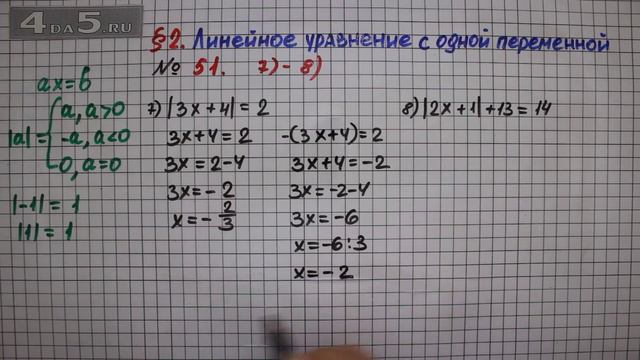 4DA5.RU
§2. Линейное уравнение с одной переменной
№ 51. 7)-8)
ax=b
|a|= { a, a>0
-a, a<0
0, a=0
|-1|=1
|1|=1
7) |3x+4|=2
3x+4=2
3x=2-4
3x=-2
x=-2/3
-(3x+4)=2
3x+4=-2
3x=-2-4
3x=-6
x=-6:3
x=-2
8) |2x+1|+13=14